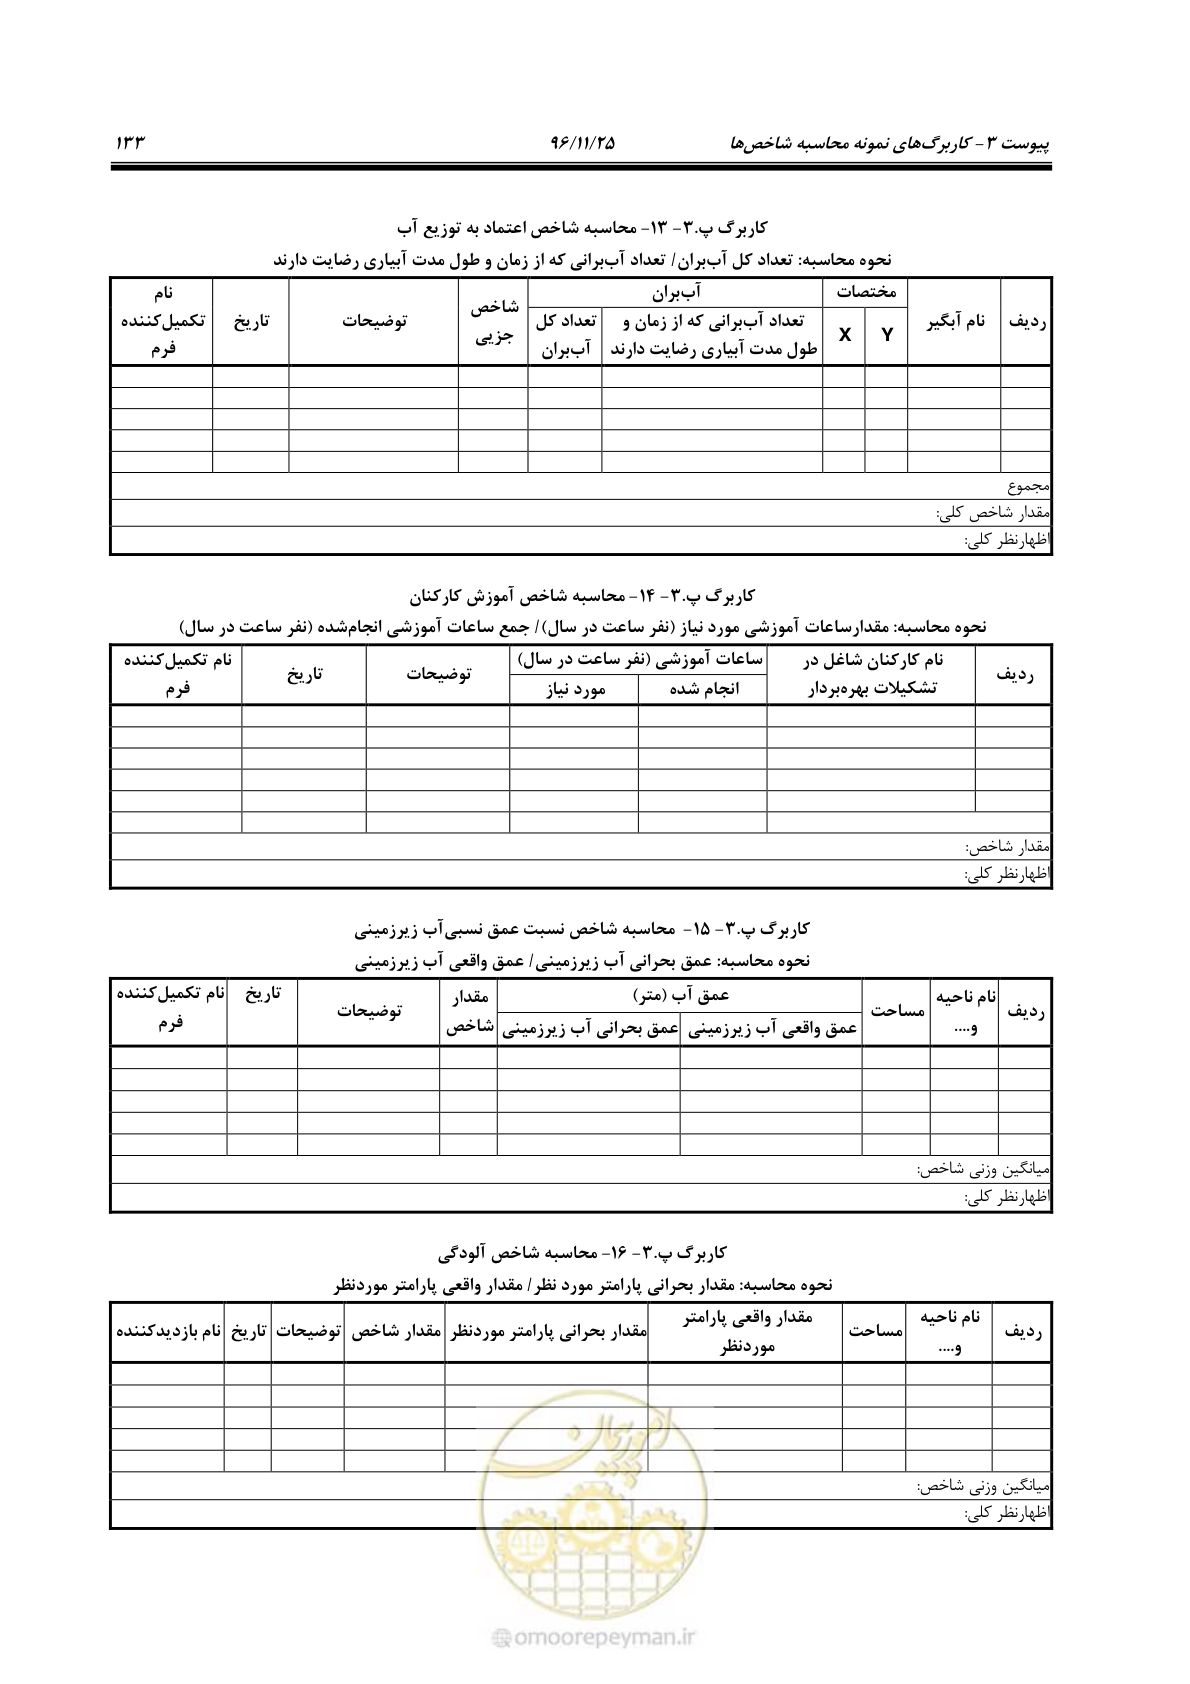 پیوست ۳- کاربرگ‌های نمونه محاسبه شاخص‌ها ۹۶/۱۱/۲۵ ۱۳۳
کاربرگ پ.۳- ۱۳- محاسبه شاخص اعتماد به توزیع آب
نحوه محاسبه: تعداد کل آب‌بران/ تعداد آب‌برانی که از زمان و طول مدت آبیاری رضایت دارند
ردیف
نام آبگیر
مختصات
Y
X
آب‌بران
تعداد آب‌برانی که از زمان و
طول مدت آبیاری رضایت دارند
تعداد کل
آب‌بران
شاخص
جزیی
توضیحات
تاریخ
نام
تکمیل‌کننده
فرم
مجموع
مقدار شاخص کلی:
اظهارنظر کلی:
کاربرگ پ.۳- ۱۴- محاسبه شاخص آموزش کارکنان
نحوه محاسبه: مقدارساعات آموزشی مورد نیاز (نفر ساعت در سال)/ جمع ساعات آموزشی انجام‌شده (نفر ساعت در سال)
ردیف
نام کارکنان شاغل در
تشکیلات بهره‌بردار
ساعات آموزشی (نفر ساعت در سال)
انجام شده
مورد نیاز
توضیحات
تاریخ
نام تکمیل‌کننده
فرم
مقدار شاخص:
اظهارنظر کلی:
کاربرگ پ.۳- ۱۵- محاسبه شاخص نسبت عمق نسبی‌آب زیرزمینی
نحوه محاسبه: عمق بحرانی آب زیرزمینی/ عمق واقعی آب زیرزمینی
ردیف
نام ناحیه
و....
مساحت
عمق آب (متر)
عمق واقعی آب زیرزمینی
عمق بحرانی آب زیرزمینی
مقدار
شاخص
توضیحات
تاریخ
نام تکمیل‌کننده
فرم
میانگین وزنی شاخص:
اظهارنظر کلی:
کاربرگ پ.۳- ۱۶- محاسبه شاخص آلودگی
نحوه محاسبه: مقدار بحرانی پارامتر مورد نظر/ مقدار واقعی پارامتر موردنظر
ردیف
نام ناحیه
و....
مساحت
مقدار واقعی پارامتر
موردنظر
مقدار بحرانی پارامتر موردنظر
مقدار شاخص
توضیحات
تاریخ
نام بازدیدکننده
میانگین وزنی شاخص:
اظهارنظر کلی:
امور پیمان
omoorepeyman.ir